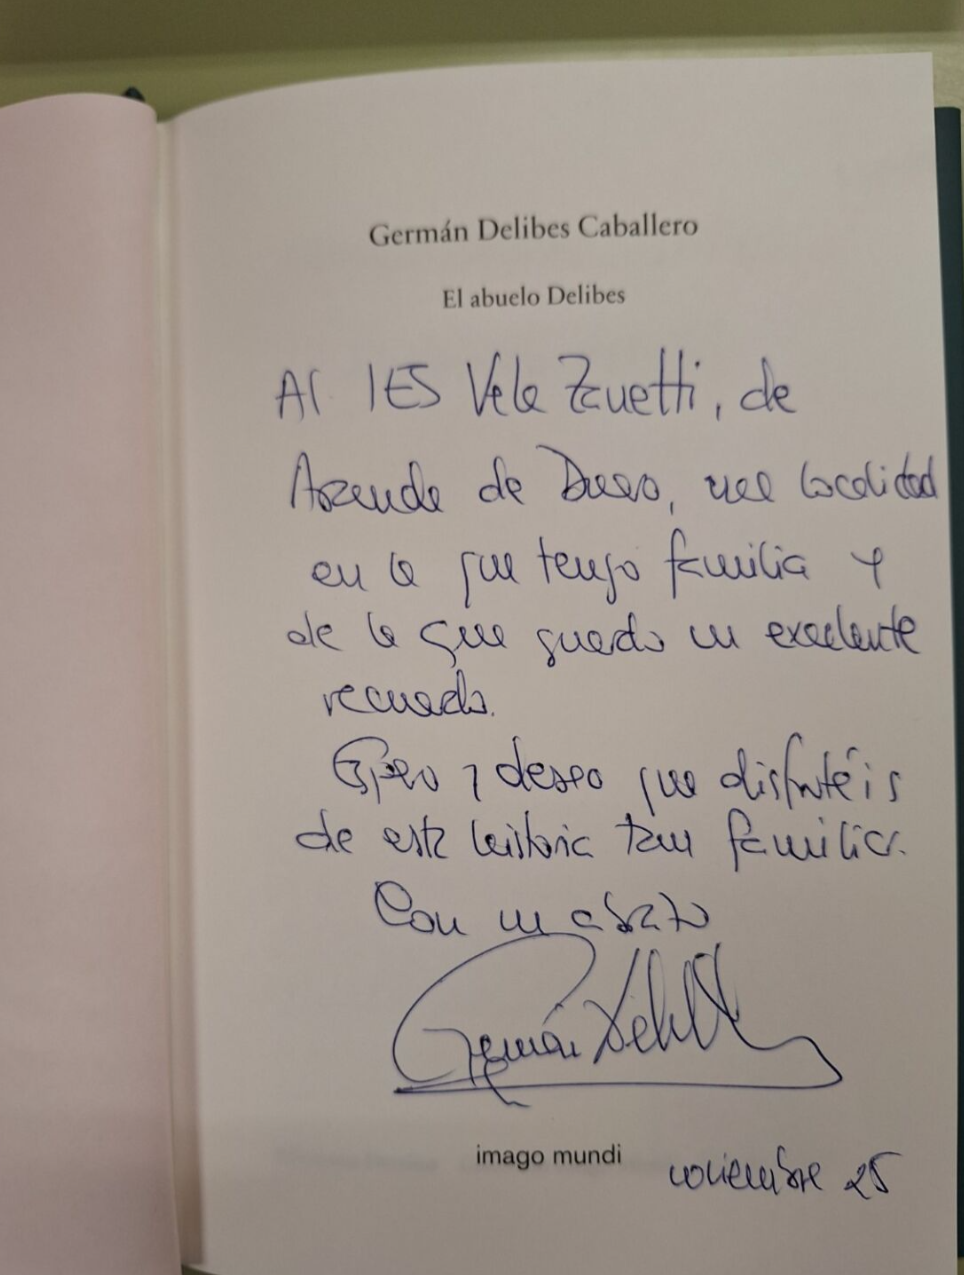 Germán Delibes Caballero
El abuelo Delibes
Al IES Vela Zanetti, de
Aranda de Duero, una localidad
en la que tengo familia y
de la que guardo un excelente
recuerdo.
Espero y deseo que disfrutéis
de esta historia tan familiar.
Con un abrazo
Germán Delibes
imago mundi
noviembre 25